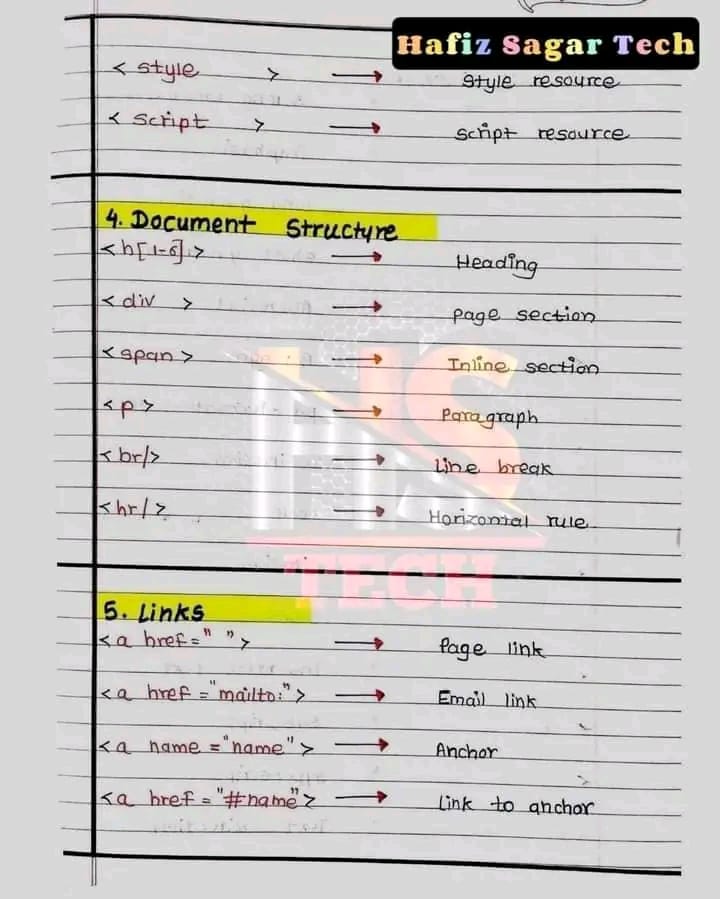 Hafiz Sagar Tech
< style > → style resource
< script > → script resource
4. Document Structure
<h[1-6]> → Heading
< div > → page section
<span> → Inline section
<p> → Paragraph
<br/> → Line break
<hr/> → Horizontal rule
HS
TECH
5. Links
<a href=" "> → Page link
<a href="mailto:"> → Email link
<a name="name"> → Anchor
<a href="#name"> → Link to anchor